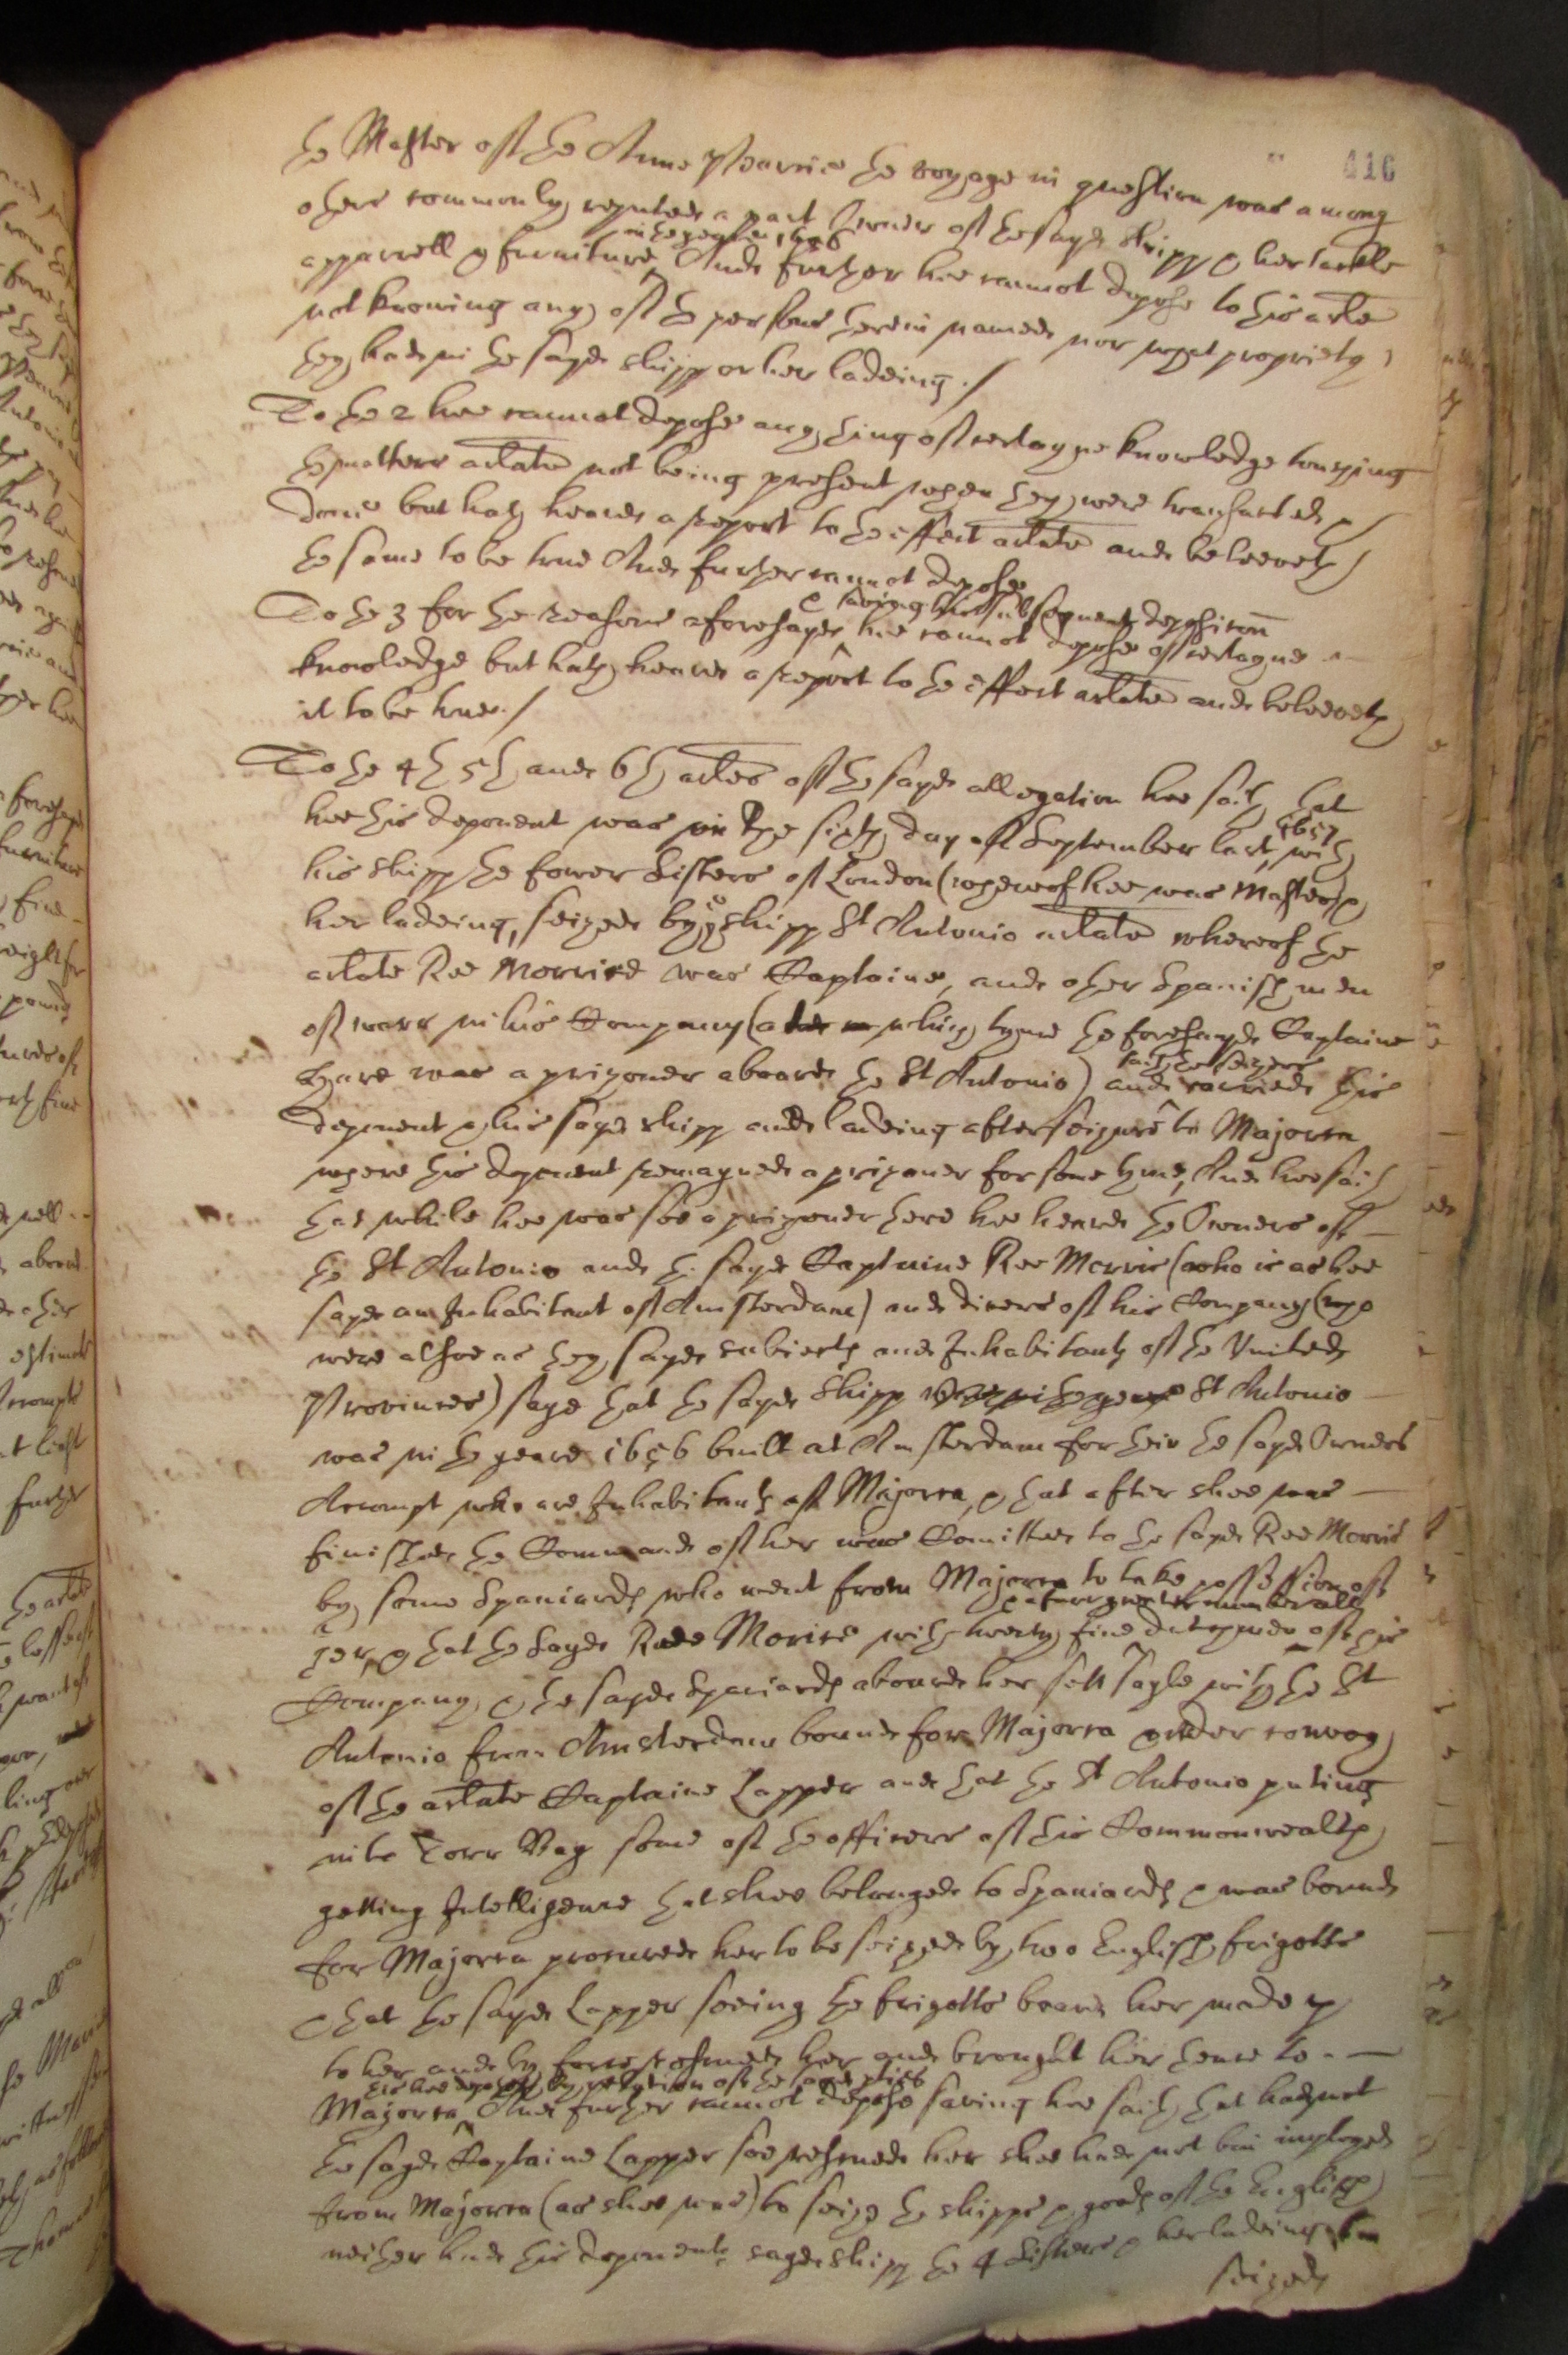 416
the Master of the Anne Pearcie the voyage in question was among
others commonly reputed a part Owner of the sayd shipp & her tackle
in the yeare 1656
apparrell & furniture, And further hee cannot depose to this arlate
not knowing any of the persons therein named nor what propriety
they had in the sayd shipp or her ladeing./
To the 2 hee cannot depose any thing of certayne knowledge touching
the matters arlate not being present when they were transacted &
done but hath heard a report to the effect arlate and beleeveth
the same to be true And further cannot depose
saving his subsequent deposition
To the 3 for the reasons aforesayd hee cannot depose of certayne
knowledge but hath heard a report to the effect arlate and beleeveth
it to be true./
To the 4th 5th and 6th arles of the sayd allegation hee saith that
hee this deponent was on the sixth day of September last, 1657 with
his shipp the fower Sisters of London (whereof hee was Master) &
her ladeing, seized by ye shipp St Antonio arlate whereof the
arlate Ree Morrice was Captaine, and other Spanish men
of warr in his Company (at which tyme the foresayd Captaine
was a prizoner aboard the St Antonio) and carried this
deponent & his sayd shipp and ladeing after seizure to Majorca
where this deponent remayned a prizoner for some tyme, And hee saith
that while hee was soe a prizoner there hee heard the Owners of
the St Antonio and the sayd Captaine Ree Morris (who is as hee
sayd an Inhabitant of Amsterdam) and divers of his Company (who
were alsoe as they sayd subiects and Inhabitants of the United
Provinces) saye that the sayd Shipp St Antonio
was in the yeare 1656 built at Amsterdam for their the sayd Owners
Accompt who are Inhabitants of Majorca, & that after shee was
finished the Command of her was Comitted to the sayd Ree Morris
by some Spaniards who went from Majorca to take possession of
& a farr greater number all
her, & that the sayd Ree Morice with twenty five dutchmen of his
Company, & the sayd Spaniards aboard her sett sayle with the St
Antonio from Amsterdam bound for Majorca under convoy
of the arlate Captaine Lapper and that the St Antonio puting
into Torr Bay some of the officers of this Commonwealth
getting Intelligence that shee belonged to Spaniards & was bound
for Majorca procured her to be seized by two English frigotts
& that the sayd Lapper seeing the frigotts board her made up
to her and by force rescued her and brought her thence to
this hee deposeth by relation of the sayd
Majorca, And further cannot depose saving hee saith that had not
the sayd Captaine Lapper soe rescued her shee had not bin imployed
from Majorca (as shee was) to seize the shipps & goods of the English
neither had this deponents sayd shipp the 4 Sisters & her ladeing bin
seized